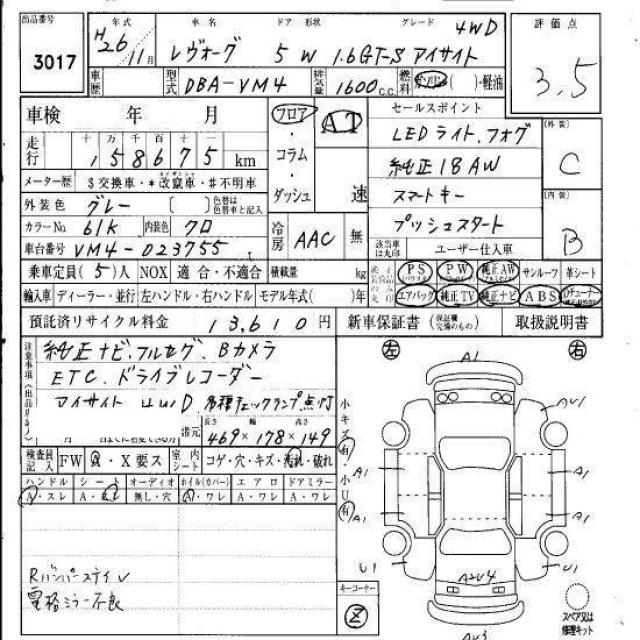 出品番号 年式 車名 ドア 形状 グレード 評価点
3017 H26 11月 レヴォーグ 5 W 1.6GT-S アイサイト 4WD 3,5
車歴 型式 DBA-VM4 排気量 1600 c.c. 燃料 ガソリン ( )・軽油
車検 年 月 フロア AT セールスポイント
走行 十 万 千 百 十 一
1 5 8 6 7 5 km
・コラム・ダッシュ 速
LEDライト、フォグ
純正18AW
スマートキー
プッシュスタート
外装 C
内装 B
メーター歴 $交換車・*改竄車・#不明車
外装色 グレー 〔 〕 色替は色替車と記入
カラーNo. 61K 内装色 クロ 冷房 AAC 無 該当車は丸印 ユーザー仕入車
車台番号 VM4-023755
乗車定員 (5)人 NOX 適合・不適合 積載量 kg PS PW 純正AW サンルーフ 革シート
輸入車 ディーラー・並行 左ハンドル・右ハンドル モデル年式( )年 エアバッグ 純正TV 純正ナビ ABS
預託済リサイクル料金 13,610円 新車保証書 取扱説明書
注意事項(出品店申告)
純正ナビ、フルセグ、Bカメラ
ETC、ドライブレコーダー
アイサイト 4WD 各種チェックランプ点灯
長さ 幅 高さ
469×178×149
検査員記入 FW A・X要ス 室内シート コゲ・穴・キズ・汚れ・破れ
ハンドル シート オーディオ ホイル(カバー) エアロ ドアミラー
A・スレ 無し・穴 A・ワレ A・ワレ A・ワレ
Rバンパーステイ
電格ミラー不良
左 右
小キズ有・小U有
A1
AU1
A1 A1
A1 A1
U1 U1
A2U4
AU3
キーコーナー
スペア又は修理キット